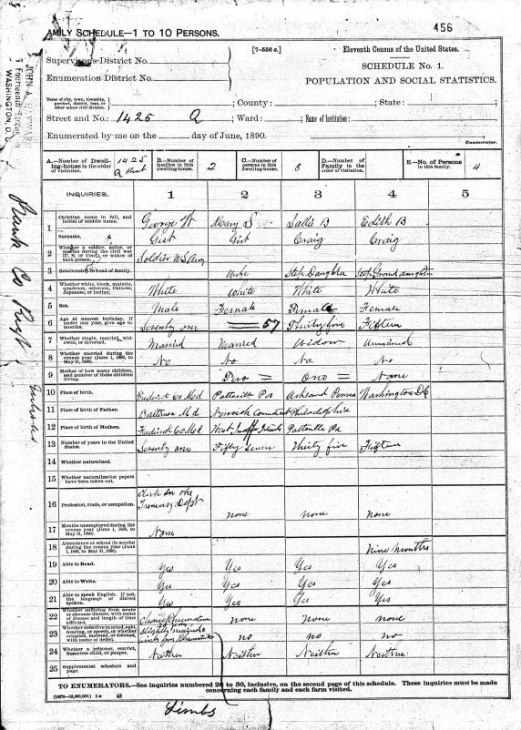 456
AMILY SCHEDULE—1 TO 10 PERSONS.
[7-556 a.]
Eleventh Census of the United States.
Supervisor's District No.
SCHEDULE No. 1.
Enumeration District No.
POPULATION AND SOCIAL STATISTICS.
Name of city, town, township, precinct, district, beat, or other minor civil division. ; County: ; State:
Street and No.: 1425 Q ; Ward: ; Name of Institution:
Enumerated by me on the day of June, 1890.
Enumerator.
A.—Number of Dwelling-house in the order of visitation. 1425 Q Street B.—Number of families in this dwelling-house. 2 C.—Number of persons in this dwelling-house. D.—Number of Family in the order of visitation. E.—No. of Persons in this family. 4
INQUIRIES. 1 2 3 4 5
1 Christian name in full, and initial of middle name. George W Mary Sallie B Edith B
Surname. Gist Gist Craig Craig
2 Whether a soldier, sailor, or marine during the civil war (U. S. or Conf.), or widow of such person. Soldier US Army
3 Relationship to head of family. Wife Step Daughter Step Granddaughter
4 Whether white, black, mulatto, quadroon, octoroon, Chinese, Japanese, or Indian. White White White White
5 Sex. Male Female Female Female
6 Age at nearest birthday. If under one year, give age in months. Seventy one 57 Thirty five Fifteen
7 Whether single, married, widowed, or divorced. Married Married Widow Unmarried
8 Whether married during the census year (June 1, 1889, to May 31, 1890). No No No No
9 Mother of how many children, and number of these children living. Two = One = None
10 Place of birth. Frederick Co Md Pottsville Pa Ashland Penna Washington DC
11 Place of birth of Father. Baltimore Md Norwich Connecticut Philadelphia
12 Place of birth of Mother. Frederick Co Md Pottsville Pa
13 Number of years in the United States. Seventy one Fifty Seven Thirty five Fifteen
14 Whether naturalized.
15 Whether naturalization papers have been taken out.
16 Profession, trade, or occupation. Clerk in the Treasury Dept none none none
17 Months unemployed during the census year (June 1, 1889, to May 31, 1890). None
18 Attendance at school (in months) during the census year (June 1, 1889, to May 31, 1890). Nine months
19 Able to Read. Yes Yes Yes Yes
20 Able to Write. Yes Yes Yes Yes
21 Able to speak English. If not, the language or dialect spoken. Yes Yes Yes Yes
22 Whether suffering from acute or chronic disease, with name of disease and length of time afflicted. Chronic Rheumatism none none none
23 Whether defective in mind, sight, hearing, or speech, or whether crippled, maimed, or deformed, with name of defect. no no no
24 Whether a prisoner, convict, homeless child, or pauper. Neither Neither Neither Neither
25 Supplemental schedule and page.
TO ENUMERATORS.—See inquiries numbered 26 to 30, inclusive, on the second page of this schedule. These inquiries must be made concerning each family and each farm visited.
Limbs
WASHINGTON, D.C.